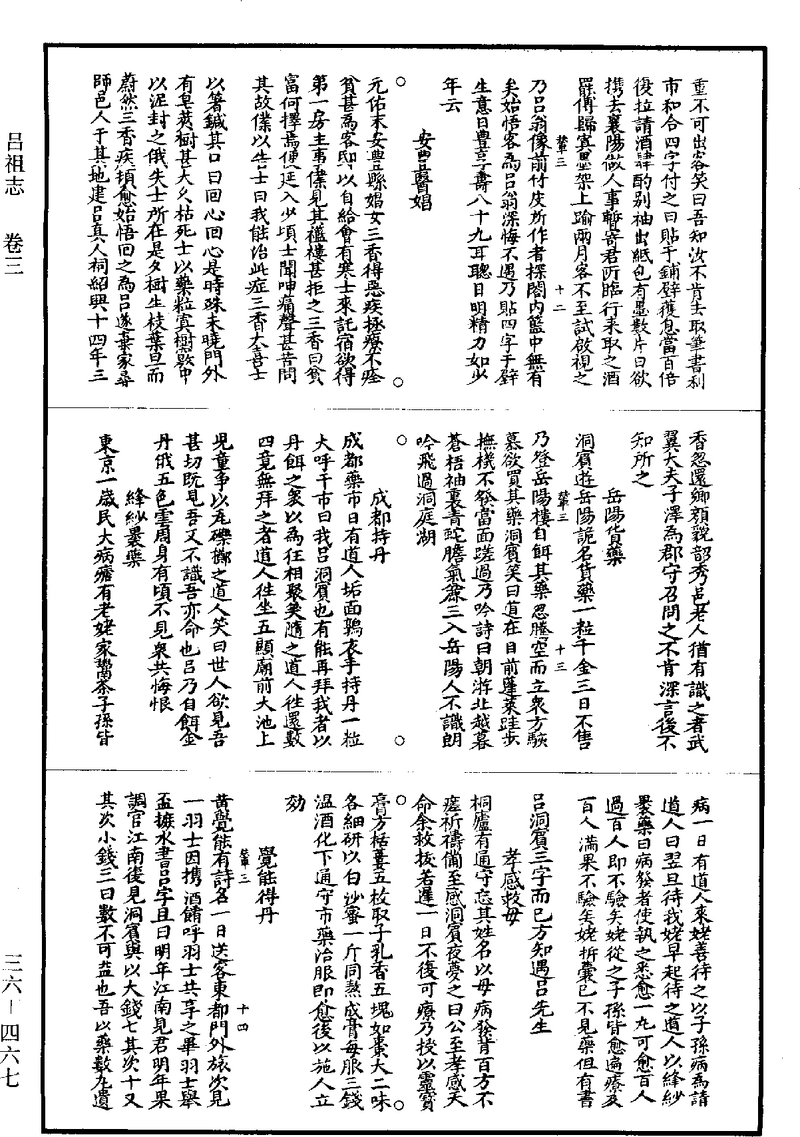 重不可出客笑曰吾知汝不肯去取筆書利
市和合四字付之曰貼于鋪壁獲息當百倍
後拉請酒肆酌別袖出紙包有墨數片曰欲
携去襄陽做人事暫寄君所臨行来取之酒
罷傅歸寘墨架上踰兩月客不至試啟視之
乃呂翁像前付皮所作者探閣内籃中無有
矣始悟客為呂翁深悔不遇乃貼四字于壁
生意日豊享壽八十九耳聰目明精力如少
年云
安豊醫娼
元佑末安豊縣娼女三香得惡疾拯療不痊
貧甚為客邸以自給會有寒士來託宿欲得
第一房主事僕見其襤褸甚拒之三香曰貧
富何擇焉便延入少頃士聞呻痛聲甚苦問
其故僕以告士曰我能治此症三香大喜士
以箸鍼其口曰回心回心是時殊未曉門外
有皂莢樹甚大久枯死士以藥粒寘樹竅中
以泥封之俄失士所在是夕樹生枝葉旦而
蔚然三香疾頓愈始悟回之為呂遂棄家尋
師邑人于其地建呂真人祠紹興十四年三
香忽還鄉顏貌韶秀邑老人猶有識之者武
翼大夫子澤為郡守召問之不肯深言後不
知所之
岳陽貨藥
洞賓遊岳陽詭名貨藥一粒千金三日不售
乃登岳陽樓自餌其藥忽騰空而立衆方駭
慕欲買其藥洞賓笑曰道在目前蓬萊跬歩
撫機不發當面蹉過乃吟詩曰朝游北越暮
蒼梧袖裏青蛇膽氣麄三入岳陽人不識朗
吟飛過洞庭湖
成都持丹
成都藥市日有道人垢面鶉衣手持丹一粒
大呼于市曰我呂洞賓也有能再拜我者以
丹餌之衆以為狂相聚笑隨之道人往還數
四竟無拜之者道人往坐五顯廟前大池上
児童爭以瓦礫擲之道人笑曰世人欲見吾
甚切既見吾又不識吾亦命也呂乃自餌金
丹俄五色雲周身有頃不見衆共悔恨
絳紗裹藥
東京一歲民大病瘧有老姥家鬻茶子孫皆
病一日有道人來姥善待之以子孫病為請
道人曰翌旦待我姥早起待之道人以絳紗
裹藥曰病發者使執之悉愈一丸可愈百人
過百人即不驗矣姥從之子孫皆愈遍療及
百人滿果不驗矣姥拆囊已不見藥但有書
呂洞賓三字而已方知遇呂先生
孝感救母
桐廬有通守忘其姓名以母病發背百方不
瘥祈禱備至感洞賓夜夢之曰公至孝感天
命余救拔若遲一日不復可療乃授以靈寶
膏方栝蔞五枚取子乳香五塊如棗大二味
各細研以白沙蜜一斤同熬成膏每服三錢
温酒化下通守市藥治服即愈後以施人立
効
覺能得丹
黄覺能有詩名一日送客東都門外旅次見
一羽士因携酒餚呼羽士共享之畢羽士舉
盃摭水書呂字且曰明年江南見君明年果
調官江南後見洞賓與以大錢七其次十又
其次小錢三曰數不可益也吾以藥數丸遺
筆三
十二
筆三
十三
筆三
十四
呂祖志　卷三
三六－四六七